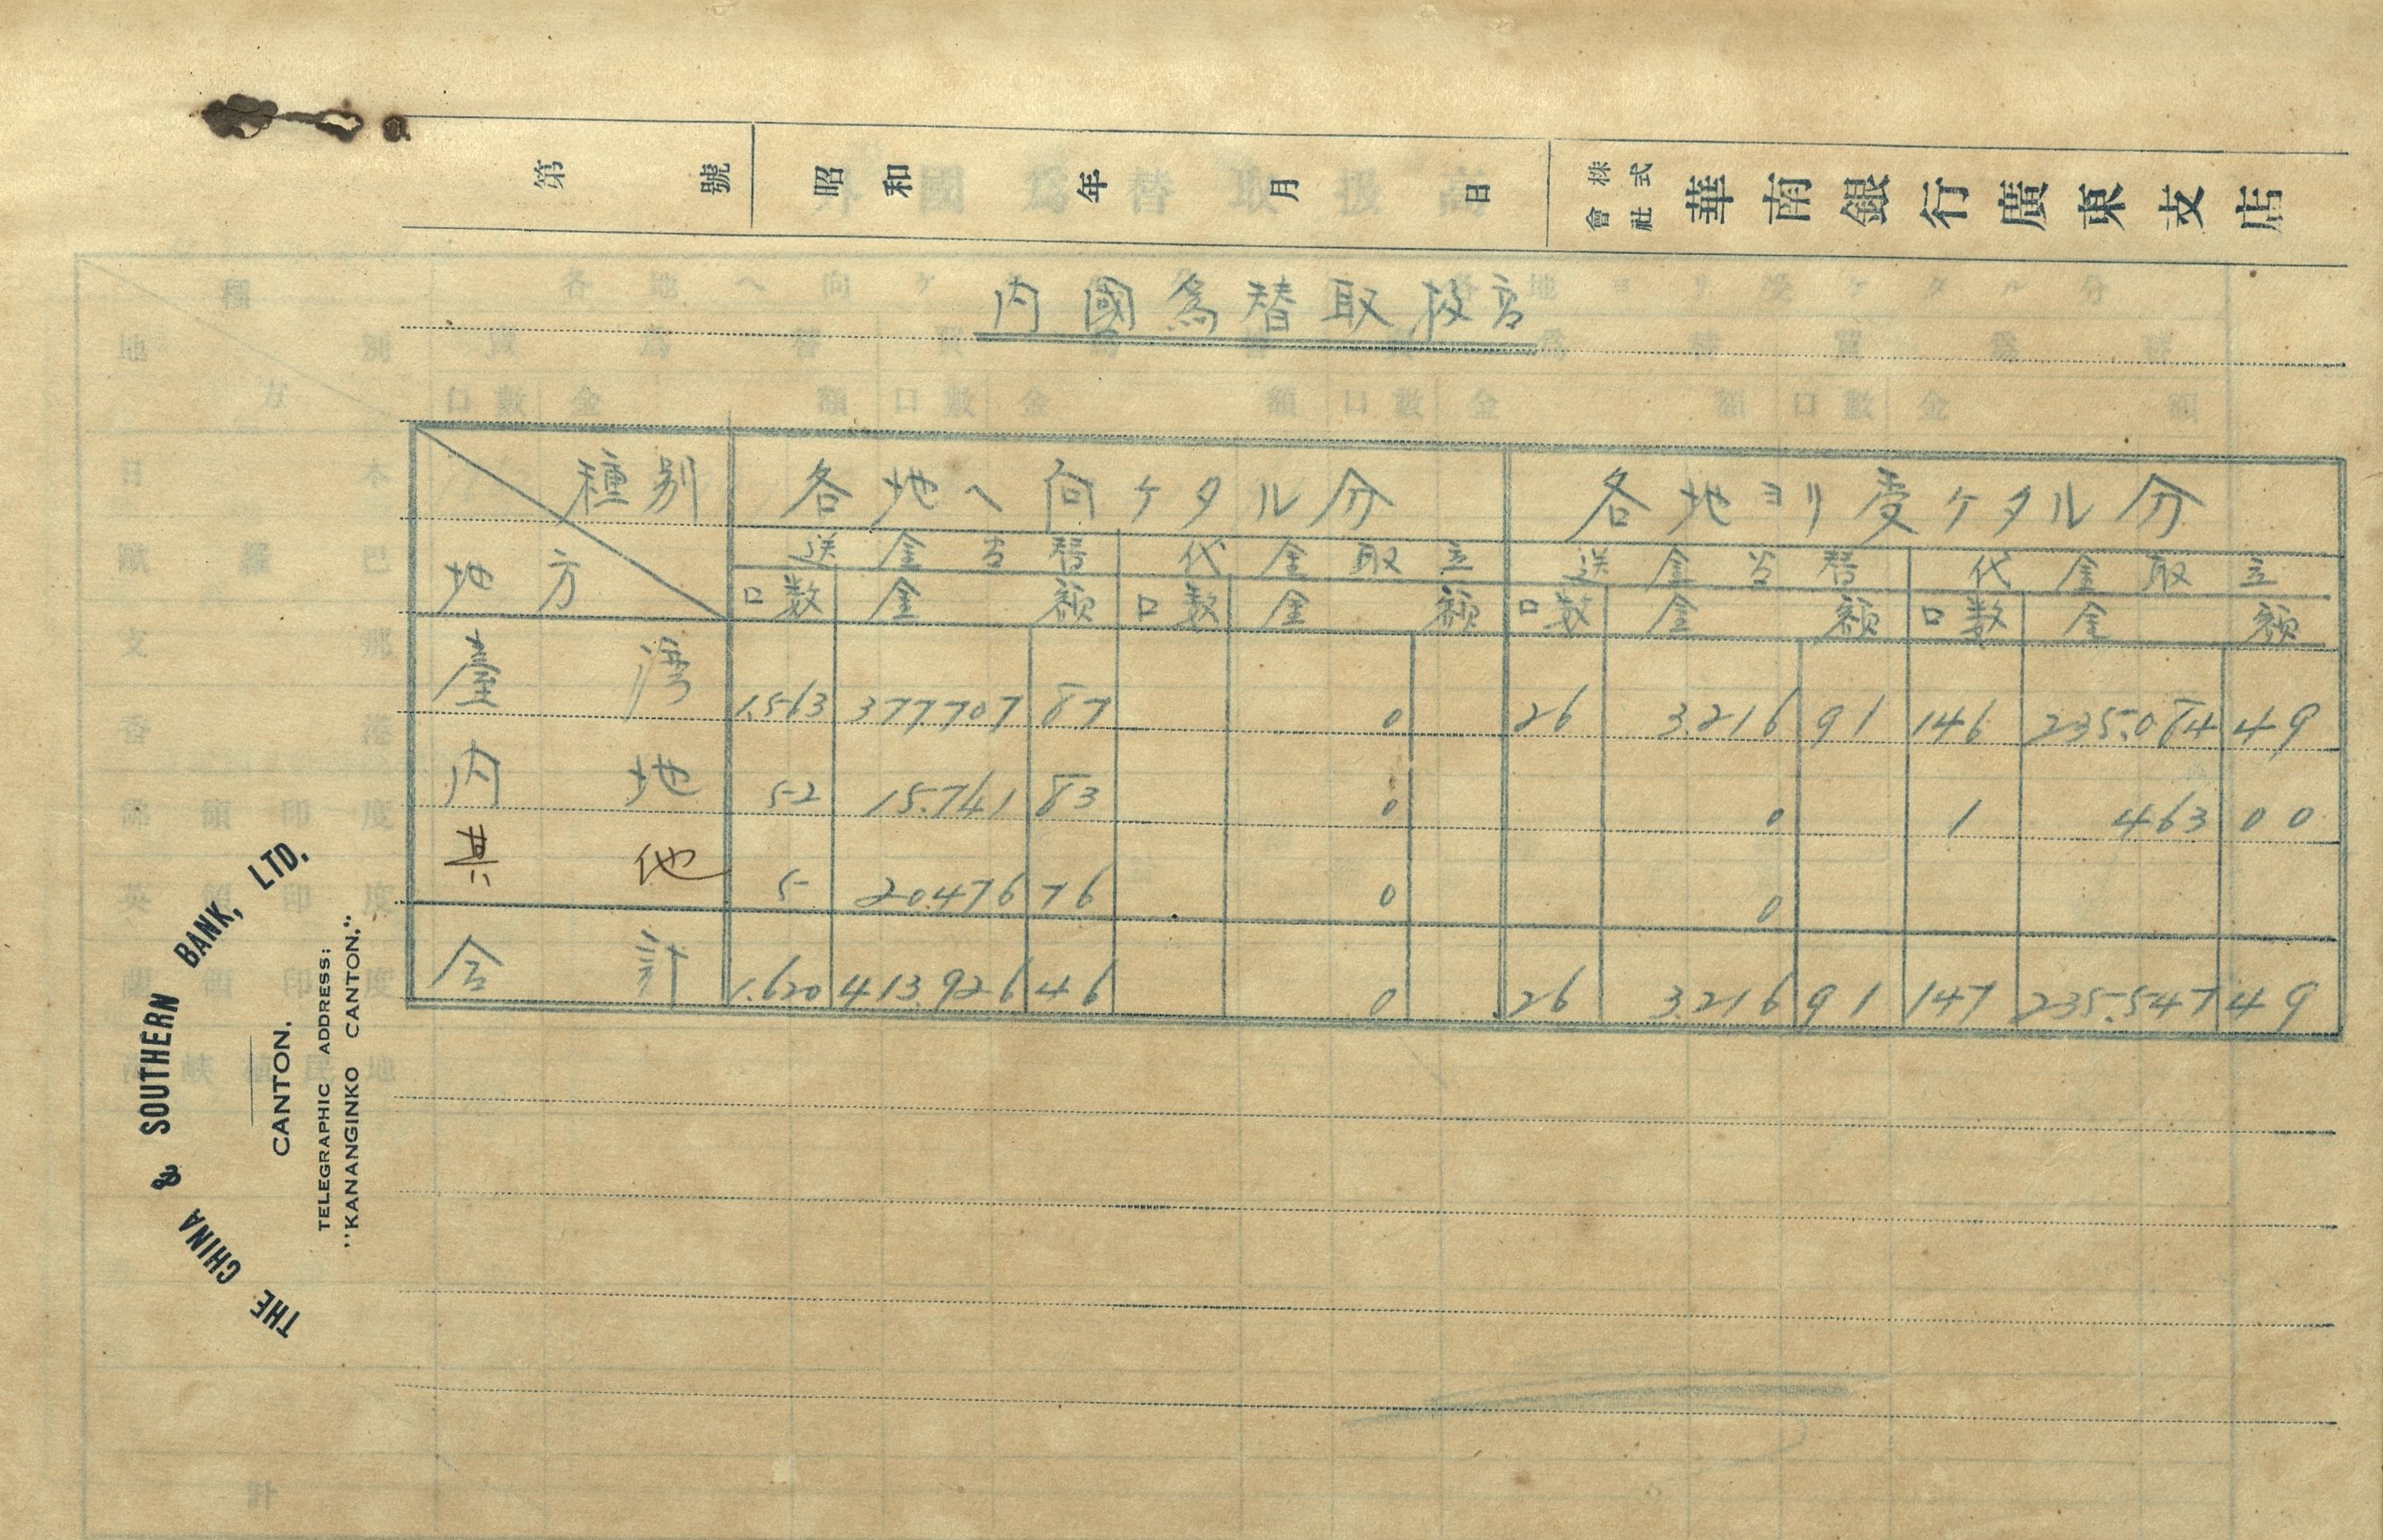 第 號 昭和 年 月 日 株式會社 華南銀行廣東支店
內國爲替取扱高
種別 各地ヘ向ケタル分 各地ヨリ受ケタル分
地方 送金当替 代金取立 送金当替 代金取立
口数 金額 口数 金額 口数 金額 口数 金額
臺灣 1.563 377.707 87 0 26 3.216 91 146 235.084 49
内地 52 15.741 83 0 0 1 463 00
其他 5 20.476 76 0 0
合計 1.620 413.926 46 0 26 3.216 91 147 235.547 49
THE CHINA & SOUTHERN BANK, LTD.
CANTON.
TELEGRAPHIC ADDRESS:
"KANANGINKO CANTON."